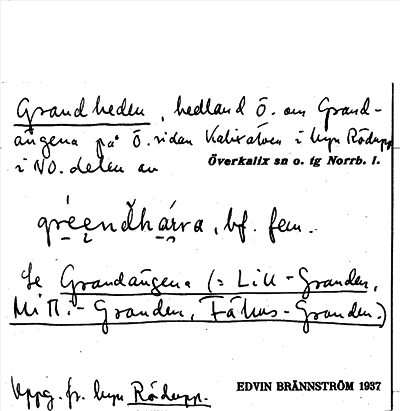 Grandheden, hedland Ö. om Grand-
ängena på Ö. sidan Kalixälven i byn Rödupp
i NO. delen av Överkalix sn o. tg Norrb. l.
gréendhárra, bf. fem.
Se Grandängena (= Lill-Granden,
Mitt.-Granden, Fähus-Granden.)
Uppg. fr. byn Rödupp.
EDVIN BRÄNNSTRÖM 1937